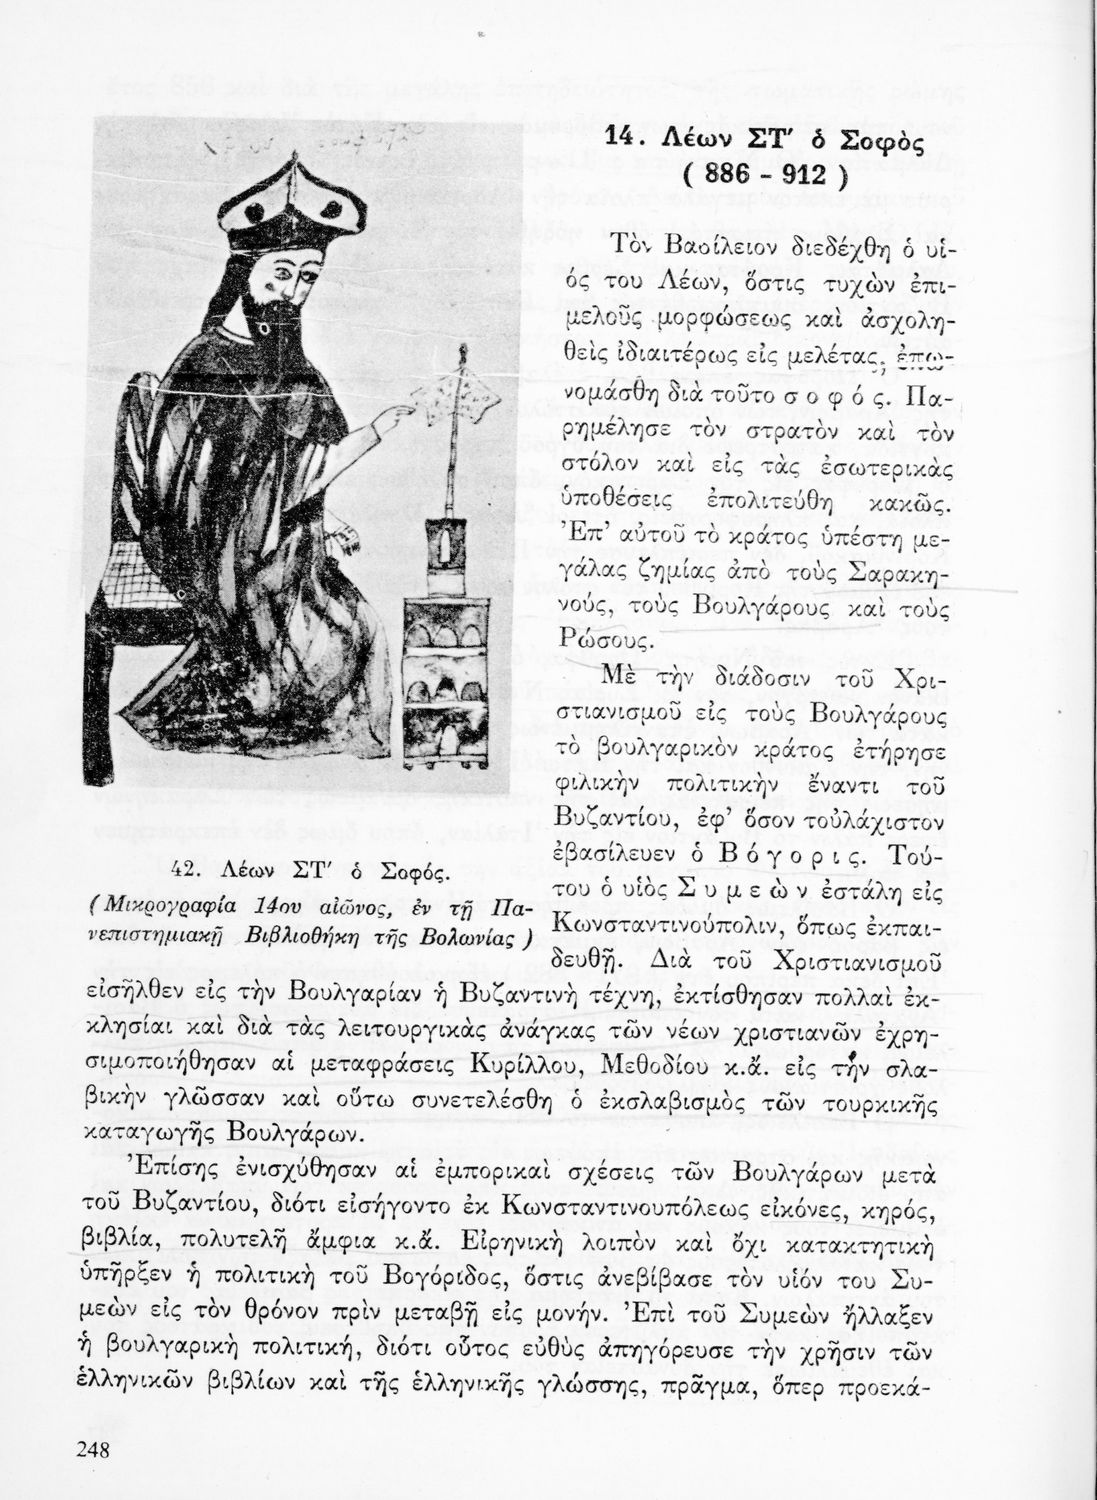 14. Λέων ΣΤ′ ὁ Σοφὸς
( 886 - 912 )
Τὸν Βασίλειον διεδέχθη ὁ υἱ-
ός του Λέων, ὅστις τυχὼν ἐπι-
μελοῦς μορφώσεως καὶ ἀσχολη-
θεὶς ἰδιαιτέρως εἰς μελέτας, ἐπω-
νομάσθη διὰ τοῦτο σ ο φ ό ς. Πα-
ρημέλησε τὸν στρατὸν καὶ τὸν
στόλον καὶ εἰς τὰς ἐσωτερικὰς
ὑποθέσεις ἐπολιτεύθη κακῶς.
Ἐπ’ αὐτοῦ τὸ κράτος ὑπέστη με-
γάλας ζημίας ἀπὸ τοὺς Σαρακη-
νούς, τοὺς Βουλγάρους καὶ τοὺς
Ρώσους.
Μὲ τὴν διάδοσιν τοῦ Χρι-
στιανισμοῦ εἰς τοὺς Βουλγάρους
τὸ βουλγαρικὸν κράτος ἐτήρησε
φιλικὴν πολιτικὴν ἔναντι τοῦ
Βυζαντίου, ἐφ’ ὅσον τοὐλάχιστον
ἐβασίλευεν ὁ Β ό γ ο ρ ι ς. Τού-
του ὁ υἱὸς Σ υ μ ε ὼ ν ἐστάλη εἰς
Κωνσταντινούπολιν, ὅπως ἐκπαι-
δευθῇ. Διὰ τοῦ Χριστιανισμοῦ
42. Λέων ΣΤ′ ὁ Σοφός.
( Μικρογραφία 14ου αἰῶνος, ἐν τῇ Πα-
νεπιστημιακῇ Βιβλιοθήκη τῆς Βολωνίας )
εἰσῆλθεν εἰς τὴν Βουλγαρίαν ἡ Βυζαντινὴ τέχνη, ἐκτίσθησαν πολλαὶ ἐκ-
κλησίαι καὶ διὰ τὰς λειτουργικὰς ἀνάγκας τῶν νέων χριστιανῶν ἐχρη-
σιμοποιήθησαν αἱ μεταφράσεις Κυρίλλου, Μεθοδίου κ.ἄ. εἰς τὴν σλα-
βικὴν γλῶσσαν καὶ οὕτω συνετελέσθη ὁ ἐκσλαβισμὸς τῶν τουρκικῆς
καταγωγῆς Βουλγάρων.
Ἐπίσης ἐνισχύθησαν αἱ ἐμπορικαὶ σχέσεις τῶν Βουλγάρων μετὰ
τοῦ Βυζαντίου, διότι εἰσήγοντο ἐκ Κωνσταντινουπόλεως εἰκόνες, κηρός,
βιβλία, πολυτελῆ ἄμφια κ.ἄ. Εἰρηνικὴ λοιπὸν καὶ ὄχι κατακτητικὴ
ὑπῆρξεν ἡ πολιτικὴ τοῦ Βογόριδος, ὅστις ἀνεβίβασε τὸν υἱόν του Συ-
μεὼν εἰς τὸν θρόνον πρὶν μεταβῇ εἰς μονήν. Ἐπὶ τοῦ Συμεὼν ἤλλαξεν
ἡ βουλγαρικὴ πολιτική, διότι οὗτος εὐθὺς ἀπηγόρευσε τὴν χρῆσιν τῶν
ἑλληνικῶν βιβλίων καὶ τῆς ἑλληνικῆς γλώσσης, πρᾶγμα, ὅπερ προεκά-
248